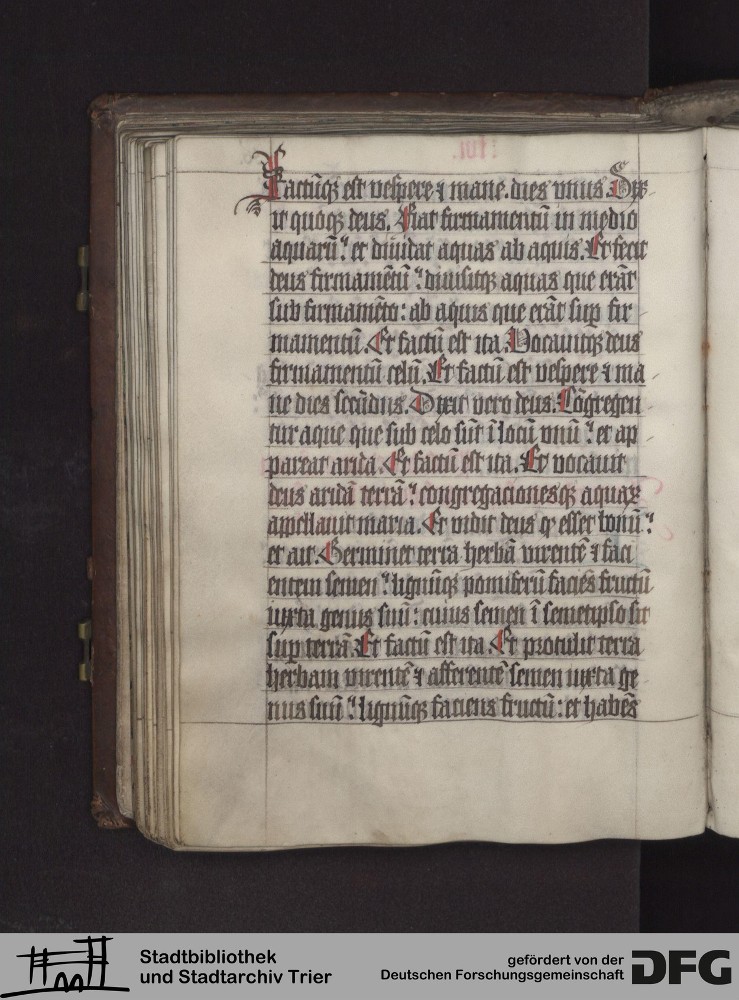 Factūqꝫ est vespere ⁊ mane. dies vnus. Dix
it quoqꝫ deus. Fiat firmamentū in medio
aquarū: et diuidat aquas ab aquis. Et fecit
deus firmamētū: diuisitqꝫ aquas que erāt
sub firmamēto: ab aquis que erāt suꝑ fir
mamentū. Et factū est ita. Vocauitqꝫ deus
firmamentū celū. Et factū est vespere ⁊ ma
ne dies secūdus. Dixit vero deus. Cōgregen
tur aque que sub celo sūt ī locū vnū: et ap
pareat arida. Et factū est ita. Et vocauit
deus aridā terrā: congregacionesqꝫ aquaꝝ
appellauit maria. Et vidit deus ꝙ esset bonū:
et ait. Germinet terra herbā virentē ⁊ faci
entem semen: lignūqꝫ pomiferū faciēs fructū
iuxta genus suū: cuius semen ī semetipso sit
suꝑ terrā. Et factū est ita. Et protulit terra
herbam virentē ⁊ afferentē semen iuxta ge
nus suū: lignūqꝫ faciens fructū: et habēs
Stadtbibliothek
und Stadtarchiv Trier
gefördert von der
Deutschen Forschungsgemeinschaft
DFG